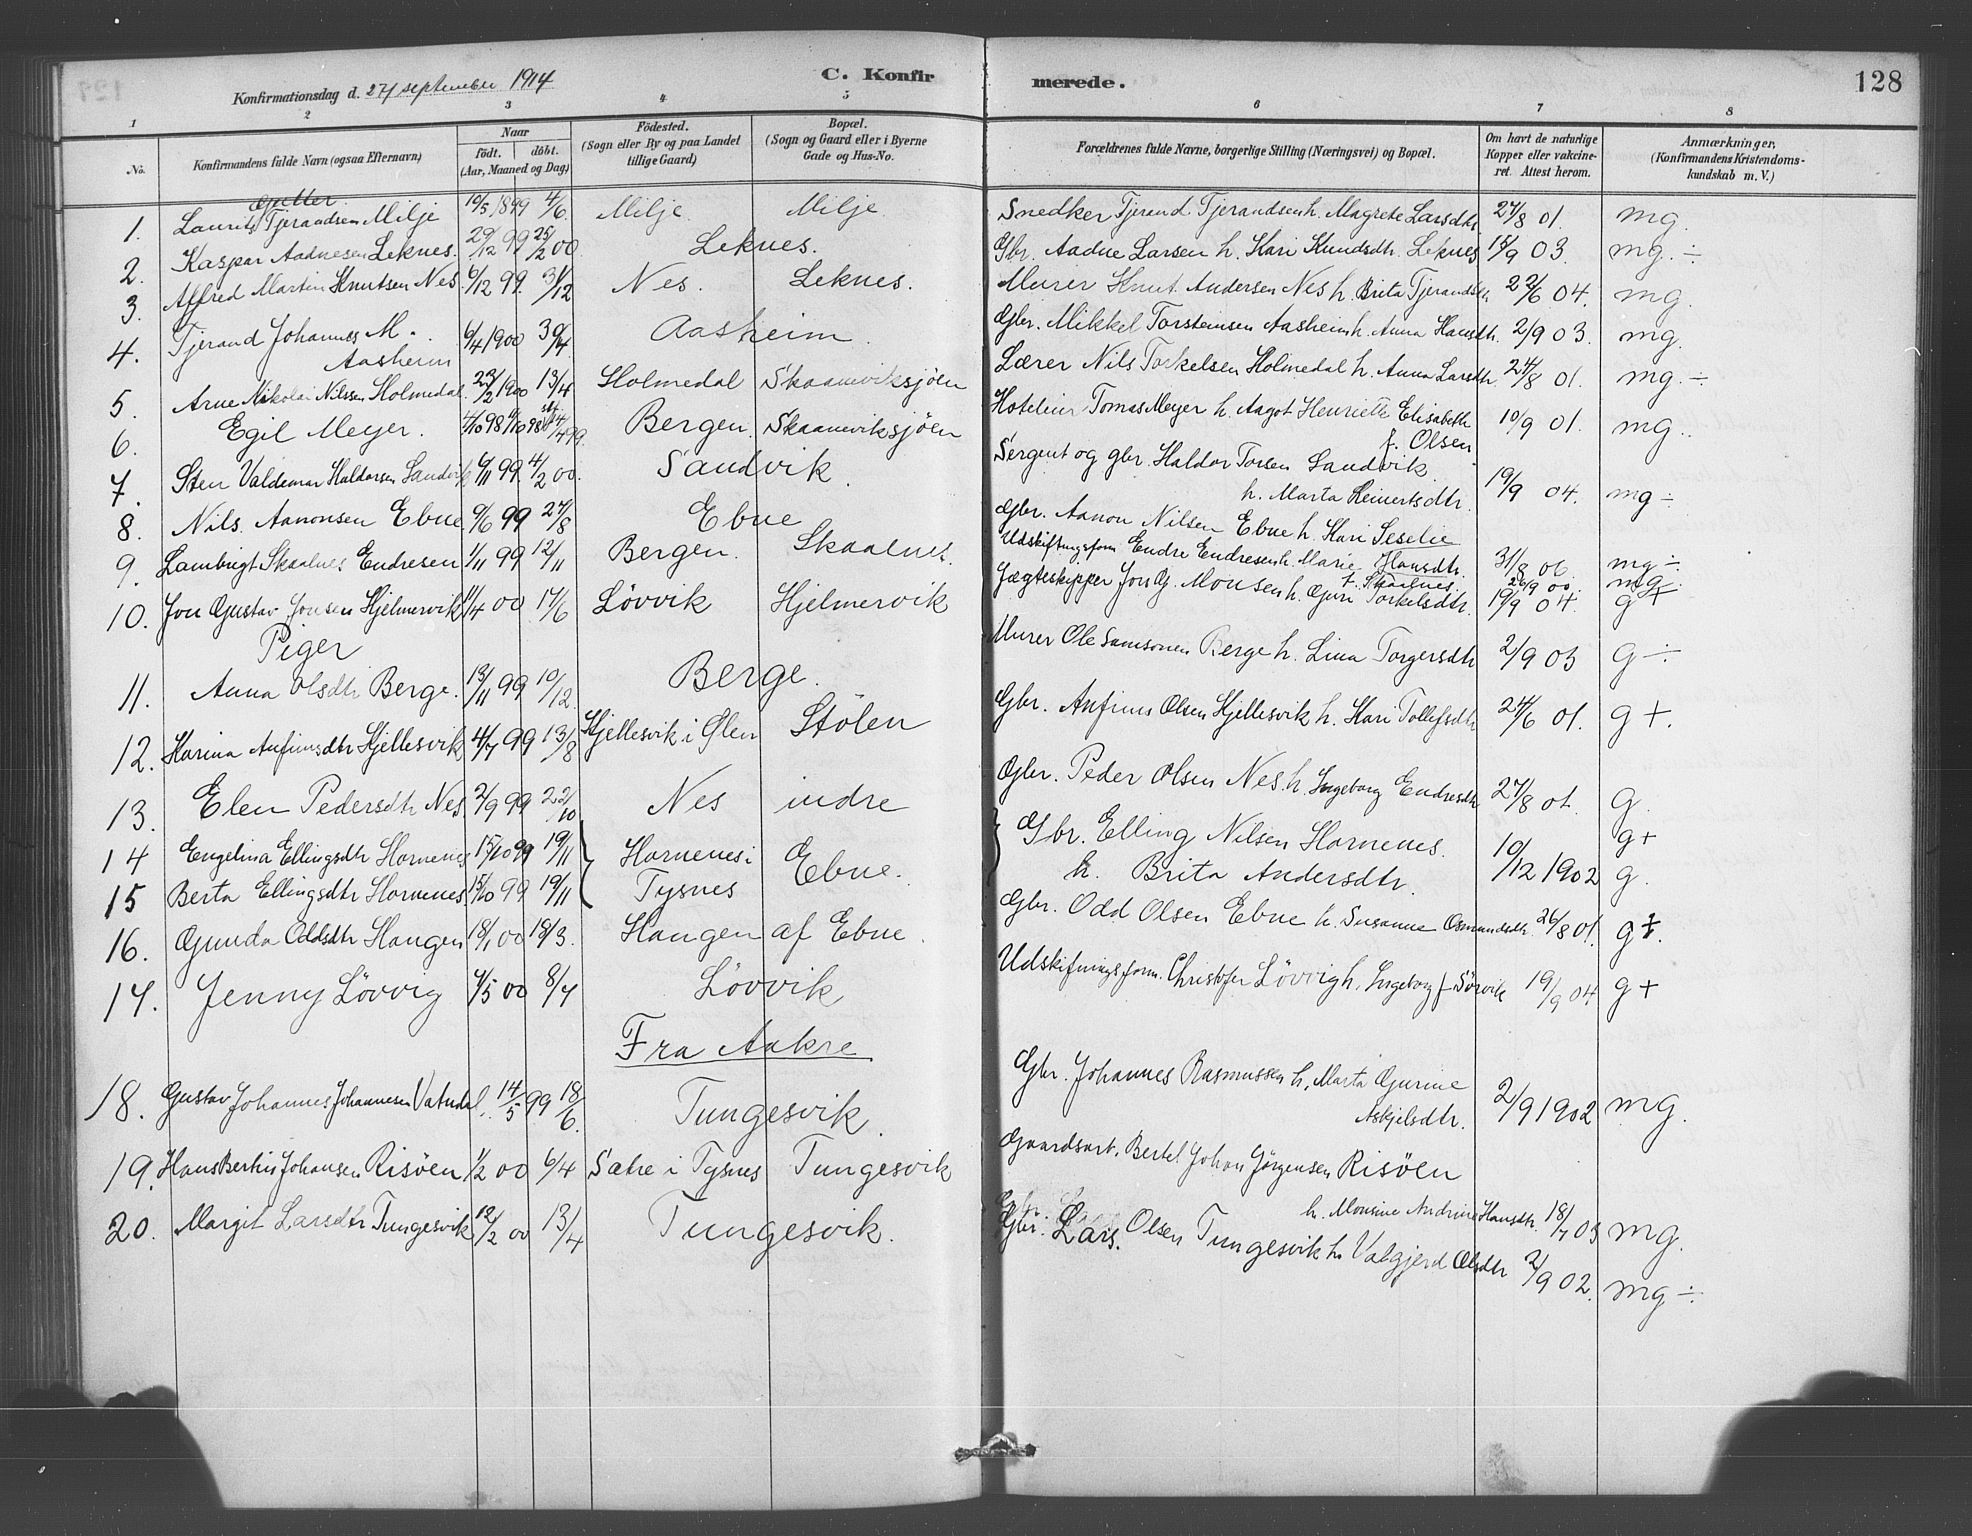 C. Konfirmerede.
128
Konfirmationsdag d. 27 september 1914
1 2 3 4 5 6 7 8
No.
Konfirmandens fulde Navn (ogsaa Efternavn)
Naar
Födt. döbt.
(Aar, Maaned og Dag)
Födested.
(Sogn eller By og paa Landet tillige Gaard)
Bopæl.
(Sogn og Gaard eller i Byerne Gade og Hus-No.
Forældrenes fulde Navne, borgerlige Stilling (Næringsvei) og Bopæl.
Om havt de naturlige Kopper eller vakcineret. Attest herom.
Anmærkninger,
(Konfirmandens Kristendomskundskab m. V.)
Gutter
1. Laurits Tjerandsen Milje 10/5 1899 4/6 Milje Milje Snedker Tjerand Tjerandsen h. Magrete Larsdtr. 27/8 01. mg.
2. Kaspar Aadnesen Leknes. 29/12 99 25/2 00 Leknes. Gbr. Aadne Larsen h. Kari Knudsdtr. Leknes 15/9 03. mg. ÷
3. Alfred Martin Knutsen Nes 6/12 99. 31/12 Nes. Leknes. Murer Knut Andersen Nes h. Brita Tjerandsdtr 22/6 04. mg.
4. Tjerand Johannes M. Aasheim 6/4 1900 30/4 Aasheim. Gbr. Mikkel Torsteinsen Aasheim h. Anna Hansdtr. 2/9 03. mg.
5. Arne Nikolai Nilssen Holmedal 23/2 1900 13/4 Holmedal Skaaneviksjöen Lærer Nils Torkelsen Holmedal h. Anna Larsdtr. 24/8 01. mg. ÷
6. Egil Meyer. 4/10 98 Bergen Skaaneviksjöen Hoteleier Tomas Meyer h. Aagot Henriette Elisabeth f. Olsen 10/9 01. mg.
7. Sten Valdemar Haldorsen Sandvik 6/11 99. 4/2 00. Sandvik. Sergent og gbr. Haldor Torsen Sandvik h. Marta Reinertsdtr. 19/9 04. mg ÷
8. Nils Aanonsen Ebne 9/6 99 27/8 Ebne Gbr. Aanon Nilsen Ebne h. Kari Seselie Hansdtr. 31/8 06 mg ÷
9. Lambrigt Skaalnes Endresen 1/11 99 12/11 Bergen. Skaalnes. Udskiftningsform Endre Endresen h. Marie f. Skaalnes 26/9 00. mg.
10. Jon Gustav Jonsen Hjelmervik 11/4 00 17/6 Lövvik Hjelmervik Jægteskipper Jon G. Monsen h. Guri Torkelsdtr. 19/9 04. g +
Piger
11. Anna Olsdtr Berge. 13/11 99 10/12. Berge. Murer Ole Samsonsen Berge h. Lina Torgersdtr 2/9 03 g ÷
12. Karina Anfinnsdtr Hjellesvik 4/7 99 13/8 Hjellesvik i Ølen Stölen Gbr. Anfinns Olsen Hjellesvik h. Kari Tollefsdtr 24/6 01. g +.
13. Elen Pedersdtr Nes 2/9 99 22/10 Nes indre Gbr. Peder Olsen Nes h. Ingeborg Endresdtr 27/8 01. g.
14 Engelina Ellingsdtr Hornenes 15/10 99 19/11 Hornenes i Tysnes Ebne. Gbr. Elling Nilsen Hornenes. h. Brita Andersdtr. 10/12 1902 g +
15 Berta Ellingsdtr Hornenes 15/10 99 19/11 g.
16. Gunda Oddsdtr Haugen 18/1 00 18/3. Haugen af Ebne. Gbr. Odd Olsen Ebne h. Susanne Osmundsdtr. 26/8 01. g +.
17. Jenny Lövvig 4/5 00 8/7 Lövvik Udskiftningsform. Christofer Lövvig h. Ingeborg f. Sörvik 19/9 04 g +
Fra Aakre
18. Gustav Johannes Johannesen Vatndal. 14/5 99 18/6. Tungesvik. Gbr. Johannes Rasmussen h. Marta Gurine Askjelsdtr. 2/9 1902 mg.
19. Hans Bertin Johansen Risöen 1/2 00 6/4 Sætre i Tysnes Tungesvik Gaardsarb. Bertel Johan Jörgensen Risöen h. Monsine Andrine Hansdtr. 18/7 03 mg.
20. Margit Larsdtr Tungesvik 12/2 00 13/4 Tungesvik. Gbr. Lars. Olsen Tungesvik h. Valgjerd Olsdtr 2/9 02. mg ÷